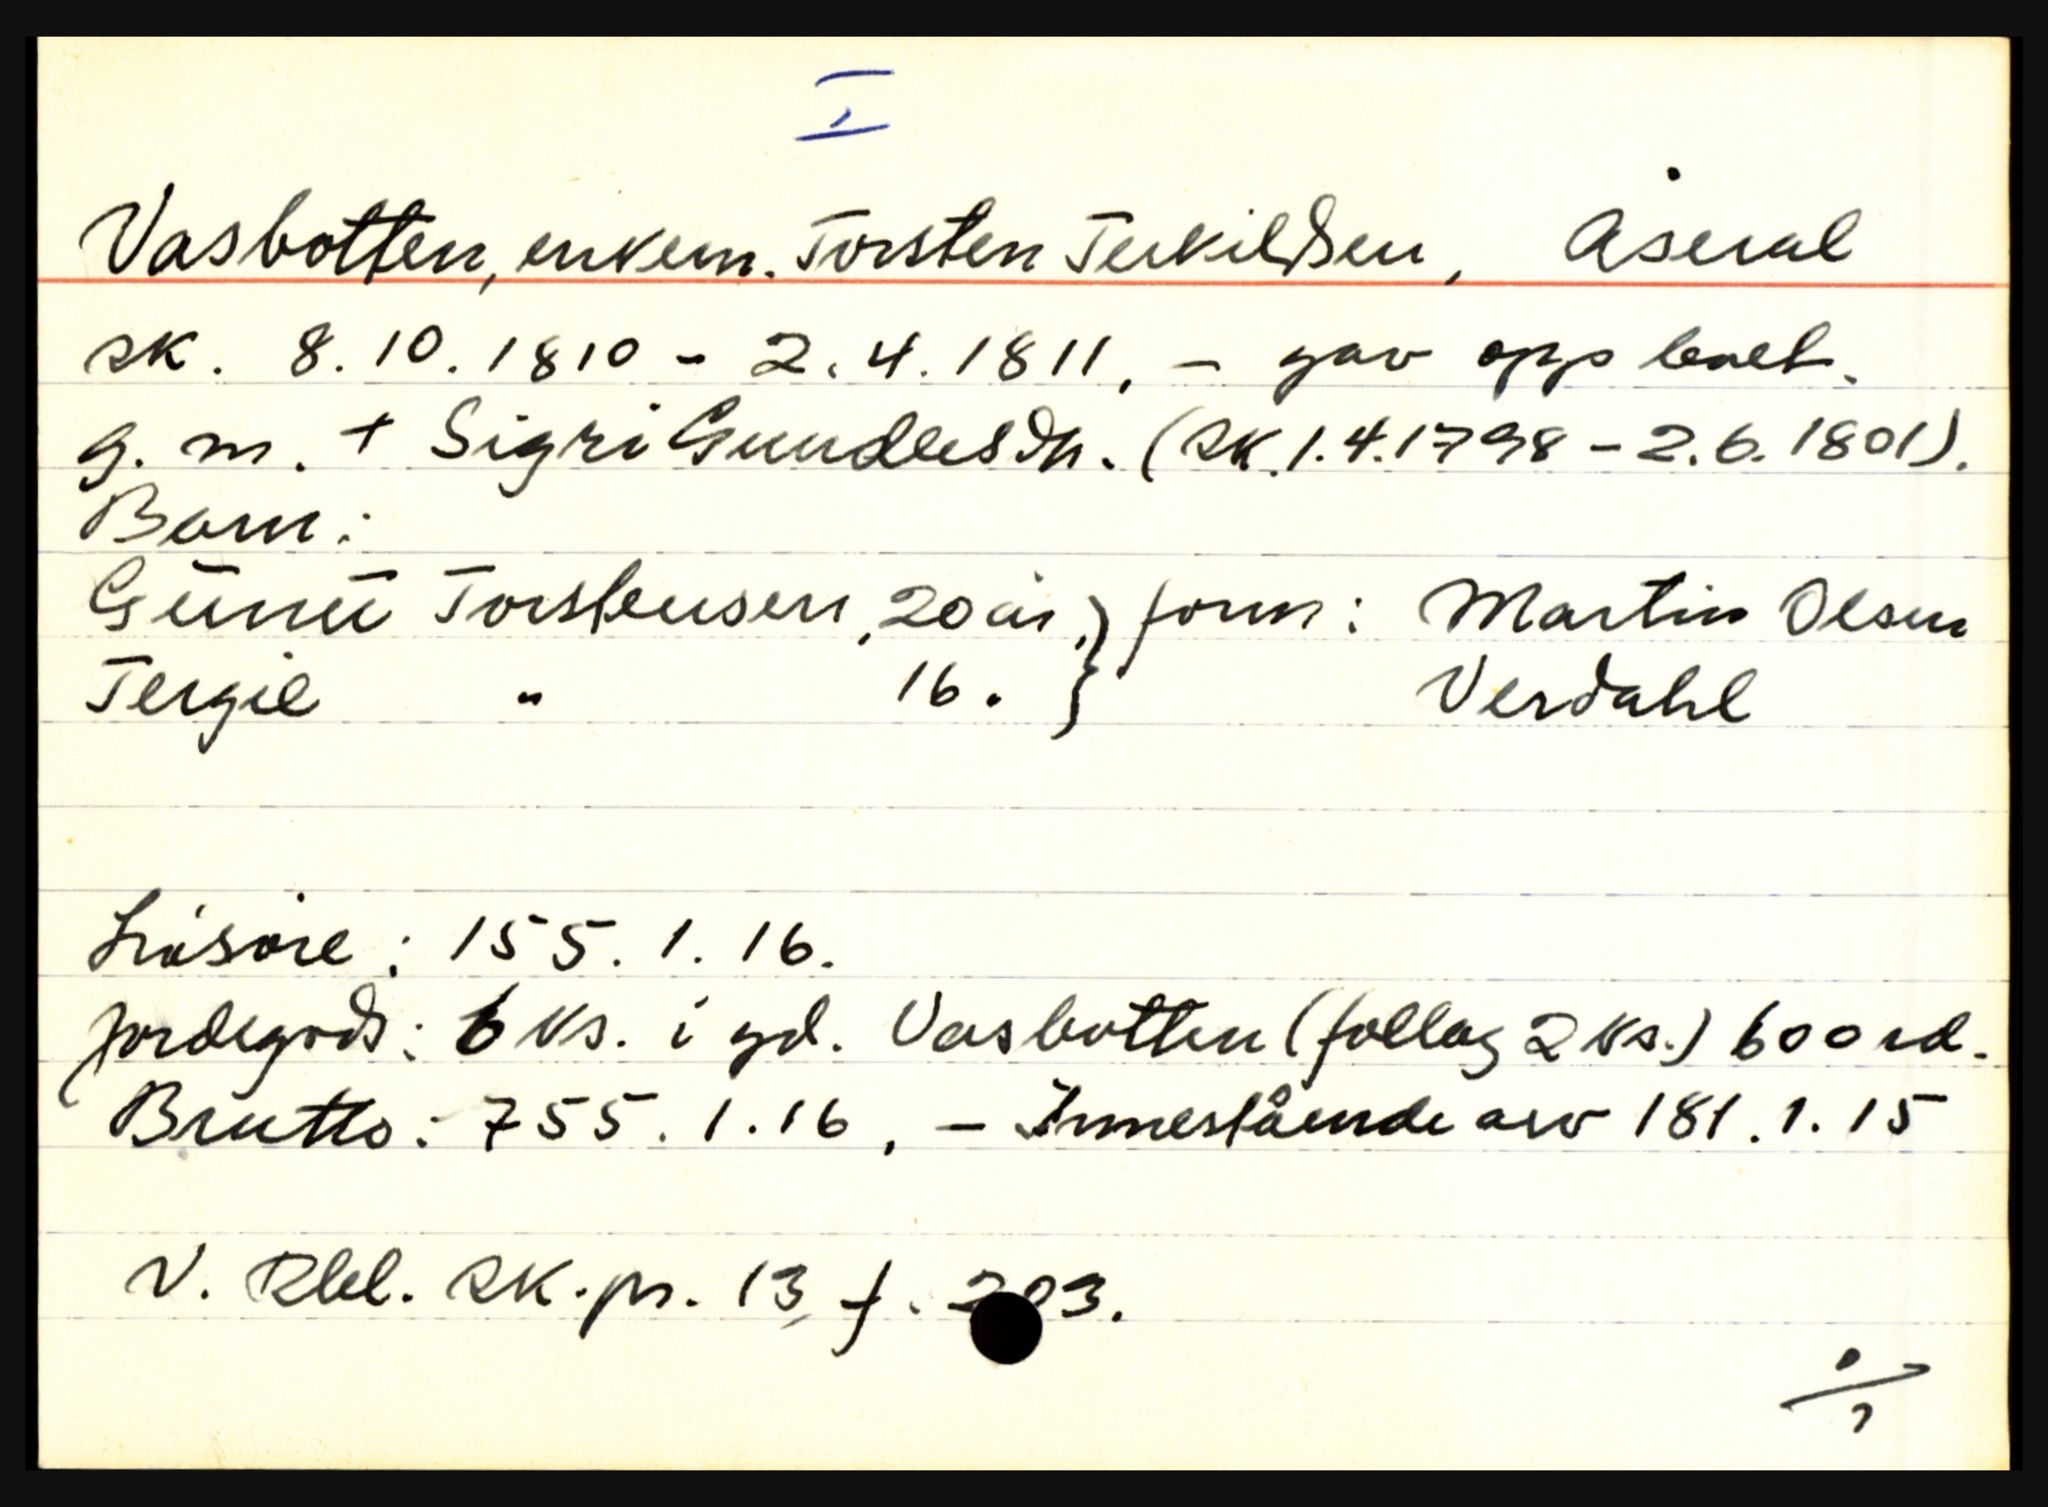 I
Vasbotten, enkem. Torsten Terkildsen, Åseral
sk. 8.10.1810 - 2.4.1811, - gav opp level.
g. m. + Sigri Gundlesdtr. (sk. 1.4.1798 - 2.6.1801).
Born:
Gunu Torstensen, 20 år, } form: Martin Olsen
Tergie " 16. } Verdahl
Lausøre: 155. 1. 16.
Jordegods: 6 ks. i gd. Vasbotten (follag 2 ks.) 600 rd.
Brutto: 755. 1. 16, - Innestående arv 181. 1. 15
V. Rbl. sk. pr. 13, f. 203.